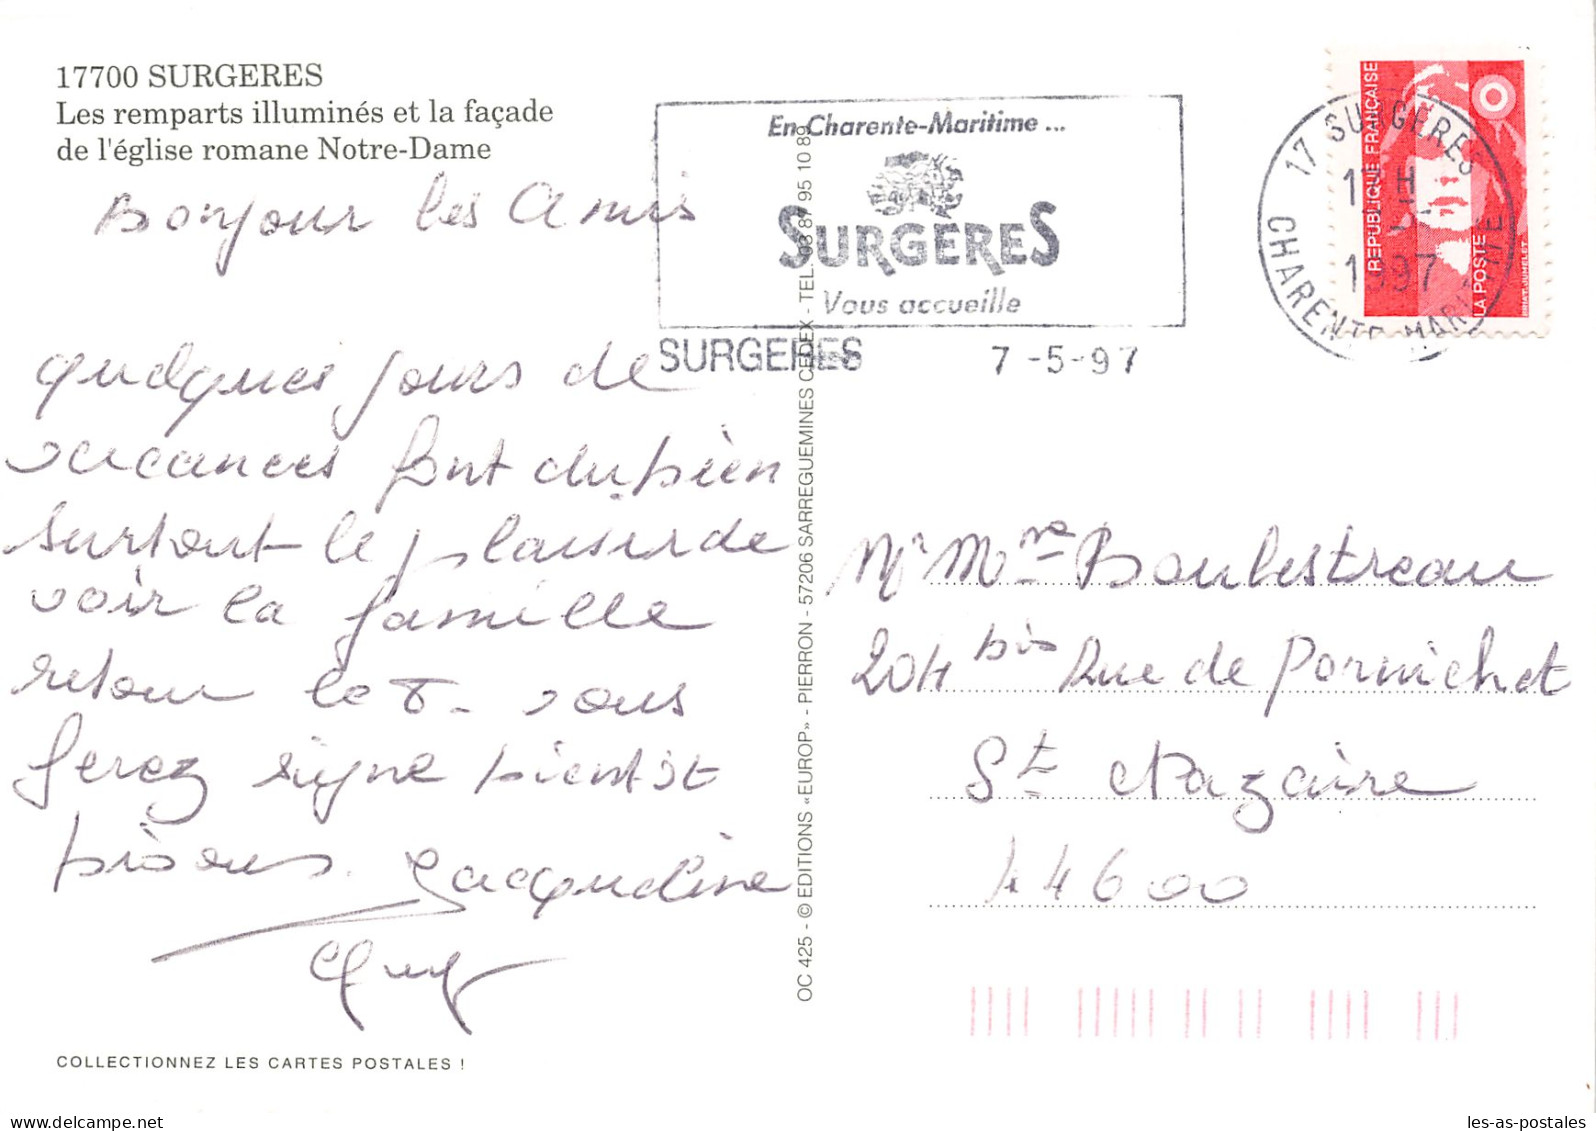 17700 SURGERES
Les remparts illuminés et la façade
de l'église romane Notre-Dame
Bonjour les Amis
quelques jours de
vacances font du bien
surtout le plaisir de
voir la famille
retour le 8 - vous
ferez signe bientôt
bisous. Jacqueline
Guy
COLLECTIONNEZ LES CARTES POSTALES !
OC 425 - © EDITIONS «EUROP» - PIERRON - 57206 SARREGUEMINES CEDEX - TEL. 03 87 95 10 89
En Charente-Maritime ...
SURGERES
Vous accueille
SURGERES 7-5-97
17 SURGERES
1997
CHARENTE MARITIME
REPUBLIQUE FRANÇAISE
LA POSTE
Mr Mme Boulestreau
204 bis Rue de Pornichet
St Nazaire
44600
delcampe.net
les-as-postales